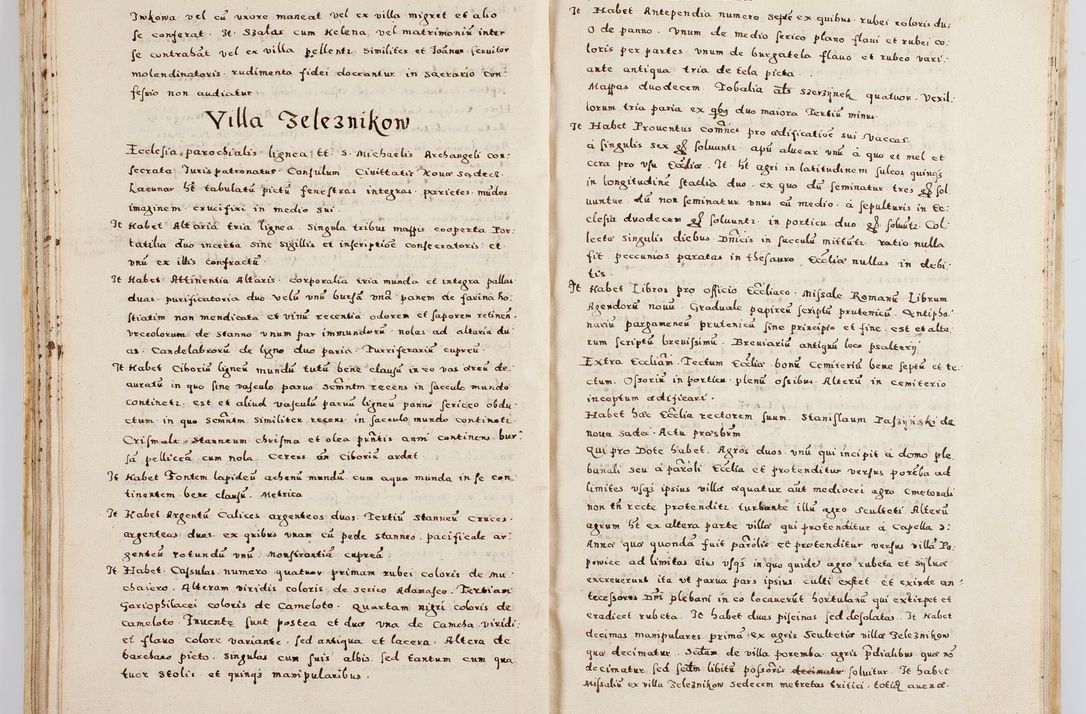 Jwkowa vel cũ vxore maneat vel ex villa migret et alio
se conferat. Jt Szałas cum Helena, vel matrimoniũ inter
se contrahãt vel ex villa pellentr. Similiter et Joãnes seruitor
molendinatoris. rudimenta fidei doceantur in sacrario con:
fessio non audiatur.
Villa Zelesnikow
Ecclesia parochialis lignea tt. S. Michaelis Archangeli con:
secrata Juris patronatus Consulum Ciuittatis Noua Sądecz.
Lacunar ht tabulatũ pictũ fenestras integras parietes mũdos
imaginem crucifixi in medio sui.
Jt Habet Altaria tria lignea. Singula tribus mappis cooperta Por:
tatilia duo incerta sint sigillis et inscriptioẽ consecratoris et
vnũ ex illis confractũ.
Jt Habet Attinentia Altaris. corporalia tria munda et integra pallas
duas. purificatoria duo velũ vnũ bursã vnã. panem de farina ho:
stiatim non mendicata et vinũ recentia odorem et saporem retinen:
vrceolorum de stanno vnum par immundorũ. nolas ad altaria du:
as. Candelabrorũ de ligno duo paria. Turriferariũ cupreũ.
Jt Habet Ciboriũ ligneũ mundũ tutũ bene clausũ in eo vas æreũ de:
auratũ in quo sine vasculo paruo Scmẽntm recens in sacculo mundo
continetr. est et aliud vasculũ paruũ ligneũ panno sericeo obdu:
ctum in quo Semñtm. Similiter recens in sacculo mundo continetr.
Crismale stanneum chrisma et olea pũntis anni continens bur:
sã pelliceã cum nola. Cereus añ Ciboriũ ardet.
Jt Habet Fontem lapideũ achenũ mundũ cum aqua munda in se con:
tinentem bene clausũ. Metrica
Jt Habet Argentũ Calices argenteos duos. Tertiũ Stanneũ Cruces.
argenteas duas. ex quibus vnam cũ pede stanneo. pacificale ar:
genteũ rotundũ vnũ. Monstrantiã cupreã.
Jt Habet. Casulas numero quatuor primam rubei coloris de mu:
chaiero. Alteram viridis coloris de serico Adamasco. Tertiam
Gariophilacei coloris de Cameloto. Quartam nigri coloris de
cameloto. Jnuentæ sunt postea et duæ vna de Camcha viridi:
et flauo colore variante. sed antiqua et lacera. Altera de
barchano picto. Singulas cum suis albis. sed tantum cum qua:
tuor stolis. et quinq3 manipularibus.
Jt Habet Antependia numero septẽ ex quibus rubei coloris du:
o de panno. Vnum de medio serico plano flaui et rubei co:
loris per partes. vnum de burgatela flauo et rubeo vari:
ante antiqua. tria de tela picta.
Mappas duodecem. Tobalia als szerzynek quatuor. Vexil:
lorum tria paria ex qbus duo maiora Tertiũ minus.
Jt Habet Prouentus com̃nes pro ædificatioẽ sui Vaccas.
à singulis sex gs soluuntr. apũ aluear vnũ à quo et mel et
cera pro vsu Eccłiæ. Jt. ht agri in latitudinem sulcos quinq3
in longitudinẽ stadia duo. ex quo dũ seminatur tres gs sol
uuntur dũ non seminatur vnus cũ medio. à sepulturis in Ec:
clesia duodecem gs soluuntr. in porticu duo gs soluũtr. Col:
lecta singulis diebus Dnĩcis in sacculũ mittũtr. ratio nulla
fit peccunias paratas in thesauro. Eccłia nullas in debi:
tis.
Jt Habet Libros pro officio Eccłiaco. Missale Romanũ Librum
Agendorũ nouũ. Graduale papireũ scriptũ prutenicũ. Antipho:
nariũ pargameneũ prutenicũ sine principio et fine. est et alte:
rum scriptũ breuissimũ. Breuiariũ antiquũ loco psalterij
Extra Eccłiam. Tectum Eccłiæ bonũ Cemiteriũ bene septũ et te:
ctum. Ossoriũ in porticu plenũ ossibus. Alterũ in cemiterio
inceptum ædificari.
Habet hæc Eccłia rectorem suum. Stanisłaum Paszyński de
noua Sadec. Actu præsbrm
Qui pro Dote habet. Agros duos. vnũ qui incipit à domo ple:
banali seu à paroli Eccłia et protenditur versus porẽba ad
limites vsq3 ipsius villæ æquatur aũt mediocri agro Cmetonali
non tñ recte protenditr. turbante illũ agro sculteti. Alterũ
agrum ht ex altera parte villæ qui protenditur à Capella S:
Annæ quæ quondã fuit parõlis et protenditur versus villã Po:
powice ad limitas eius vsq3 in quo quidẽ agro rubeta et syluæ
excreuerunt ita vt parua pars ipsius culti extet. et exinde an:
tecessores Dni plebani in eo locauerũt hortulanũ qui extirpet et
eradicet rubeta. Jt habet duas piscinas sed desolatas. Jt Habet
decimas manipulares primã ex agris Scultetiæ villæ Zelesnikow
quæ decimatur. Scdam de villa poremba. agris prædialibus quæ nõ
decimatur sed scdm libitũ possoris decimatr soluitur. Jt habet
Missaliũ ex villa Zelesnikow sedecem metretas tritici. totiq auenæ.